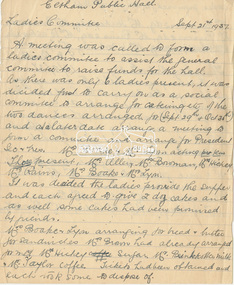 Eltham Public Hall
Ladies Committee Sept 21st 1937
A meeting was called to form a
ladies committee to assist the general
committee to raise funds for the hall.
As there was only 6 ladies present, it was
decided just to carry on as a social
committee to arrange for catering etc of the
two dances arranged for (Sept 29th & Oct 21st)
and at later date to have a meeting to
form a committee and arrange for President
Sec & Tres.
Those present, Mrs Allen, Mrs Bowman, Mrs
Mrs Davis, Mrs Boake & Mrs Lyon.
It was decided the ladies provide the supper
and each agreed to give 2 dz cakes and
as well some cakes had been promised
by friends.
Mrs Boake & Lyon arranging for bread & butter
for sandwiches Mrs had already arranged
for Mrs sugar Mrs milk
Mrs Taylor coffee. Tickets had been obtained and
each took some to dispose of